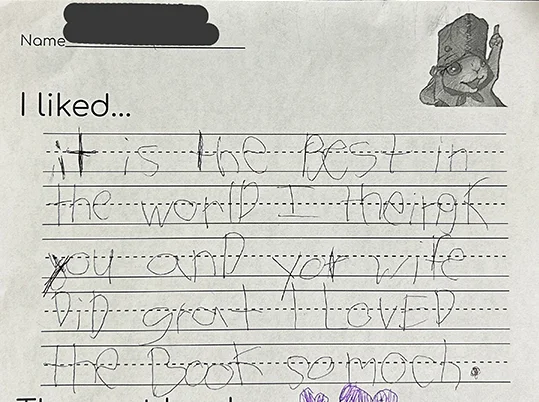 Name
I liked...
it is the Best in
the worlD I theingk
you and yor wife
DiD grat I lovED
the Book so moch.